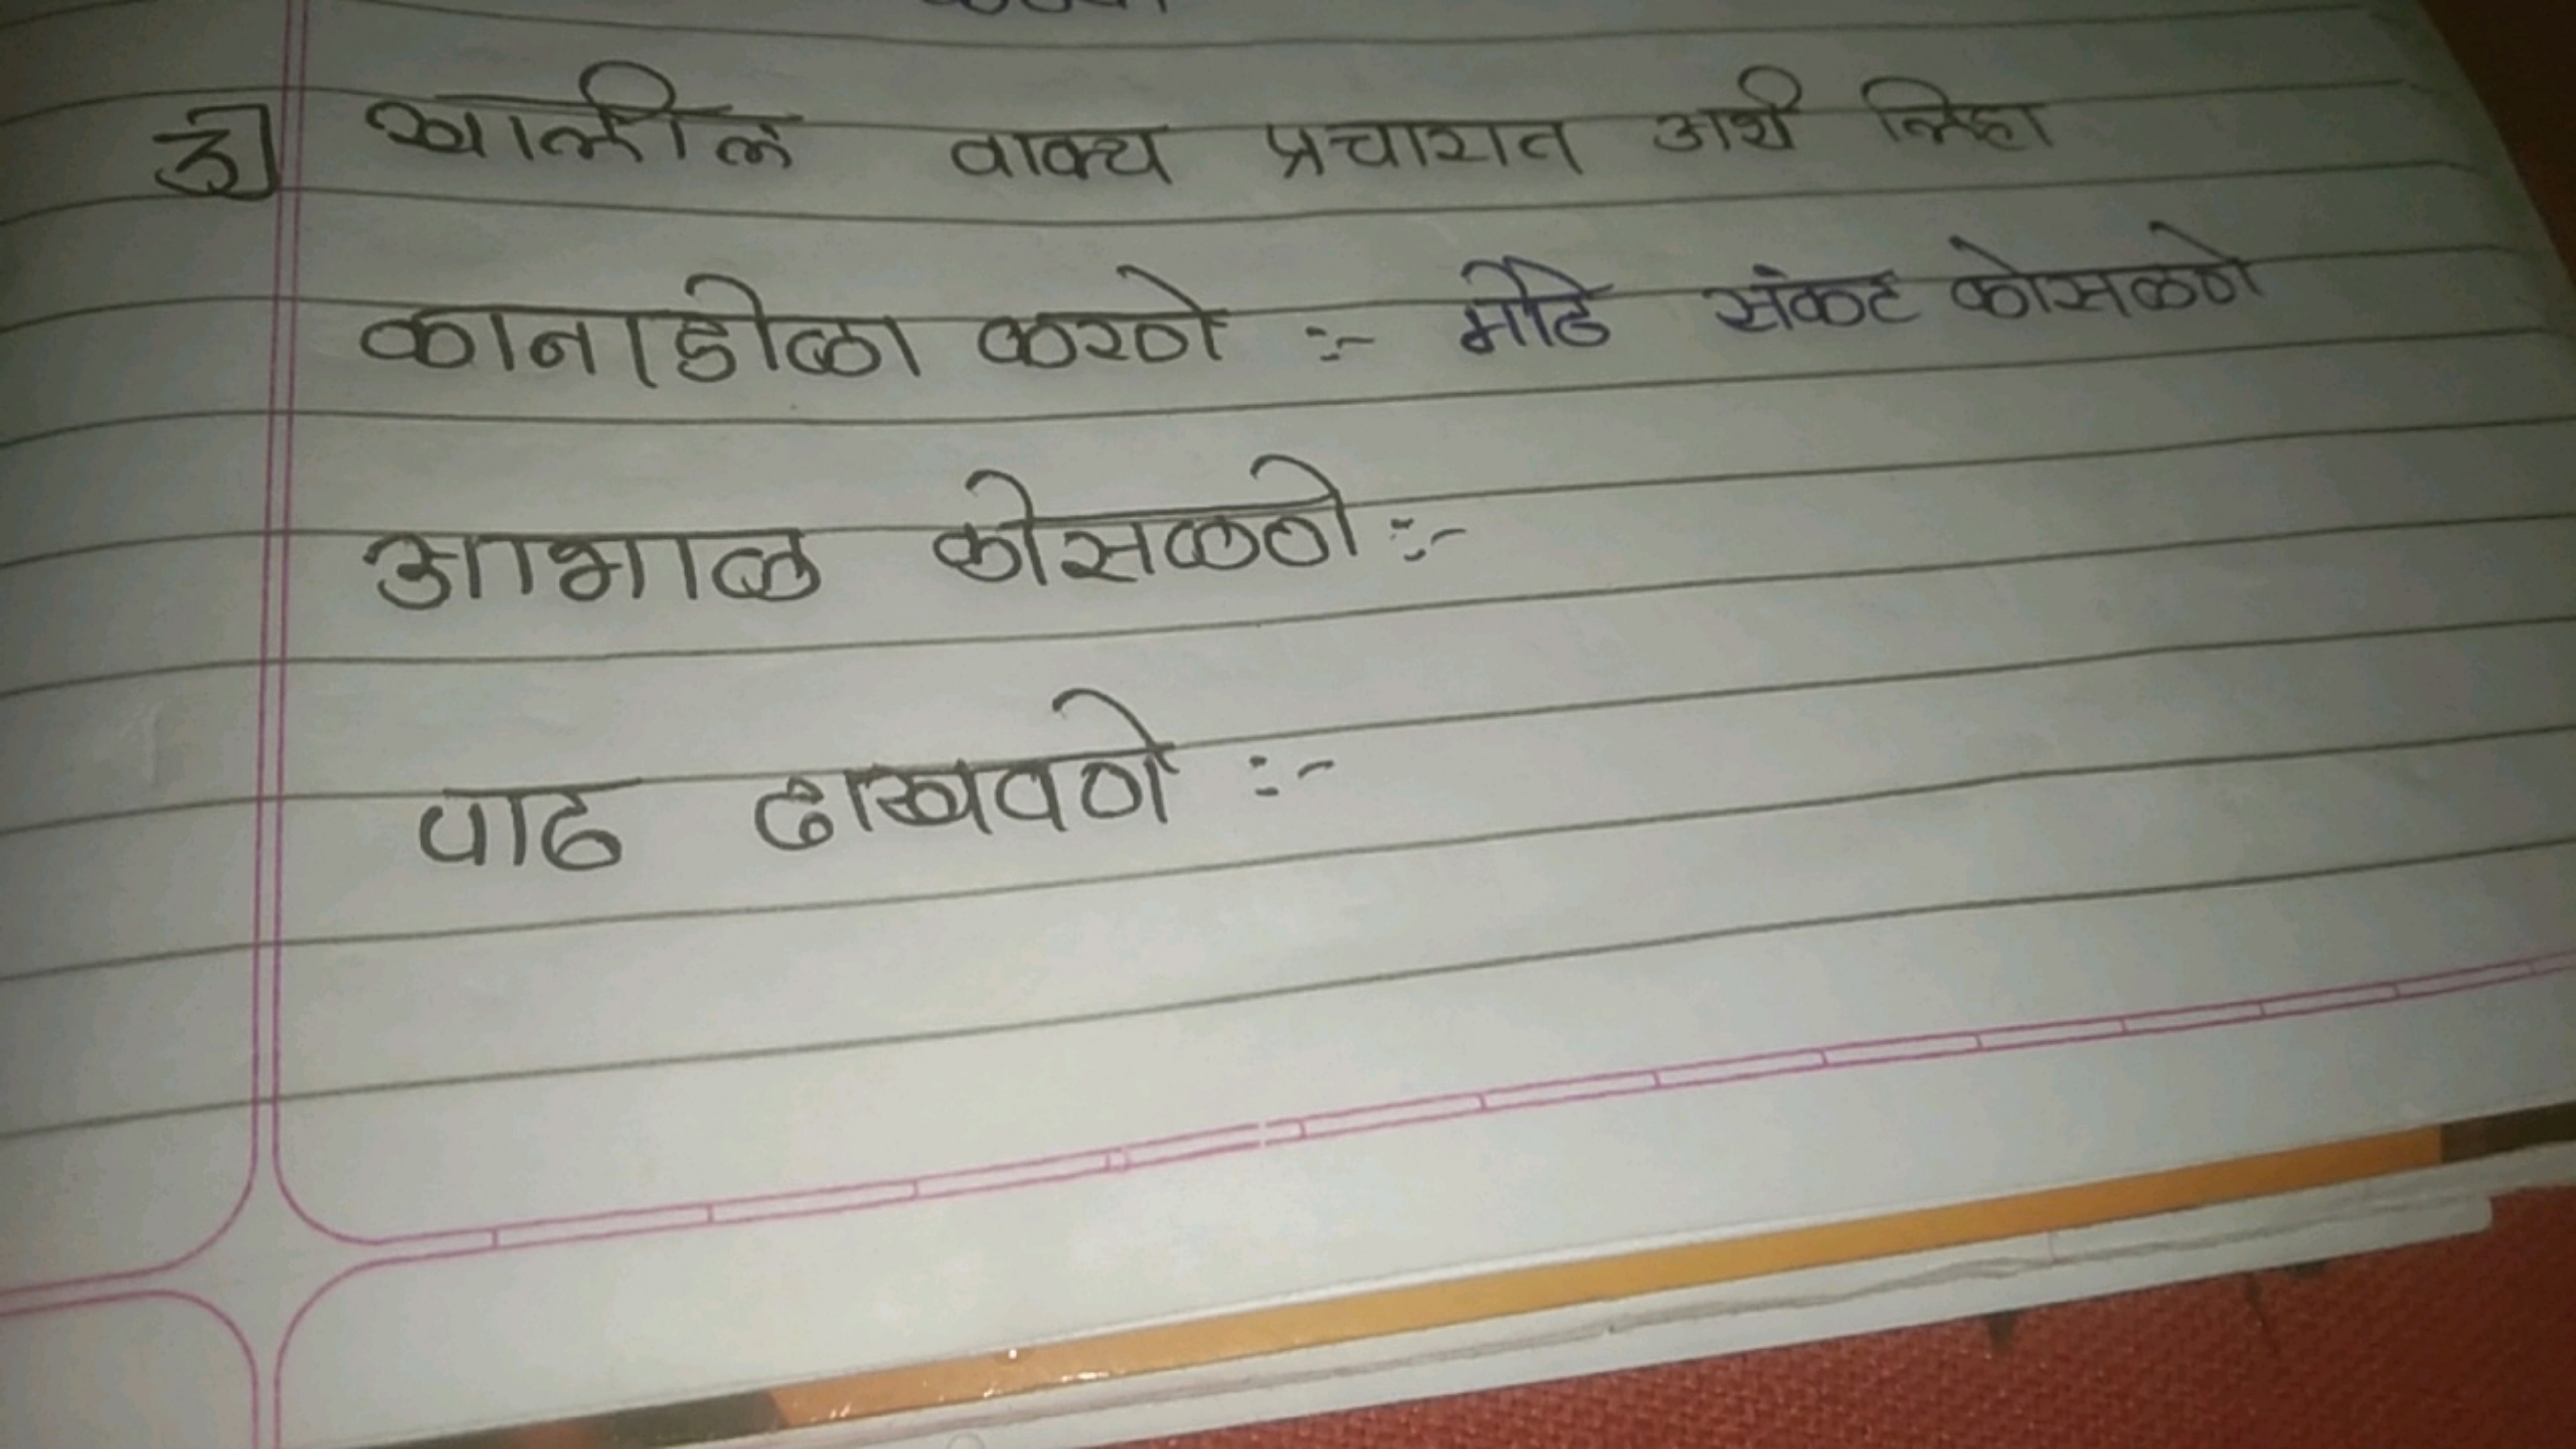 3] खालील वाक्य प्रचारात अर्थ लिहा
कानाडोळा करणे :- मोठे संकट कोसळणे
आभाळ कोसळणे :-
पाठ दाखवणे :-